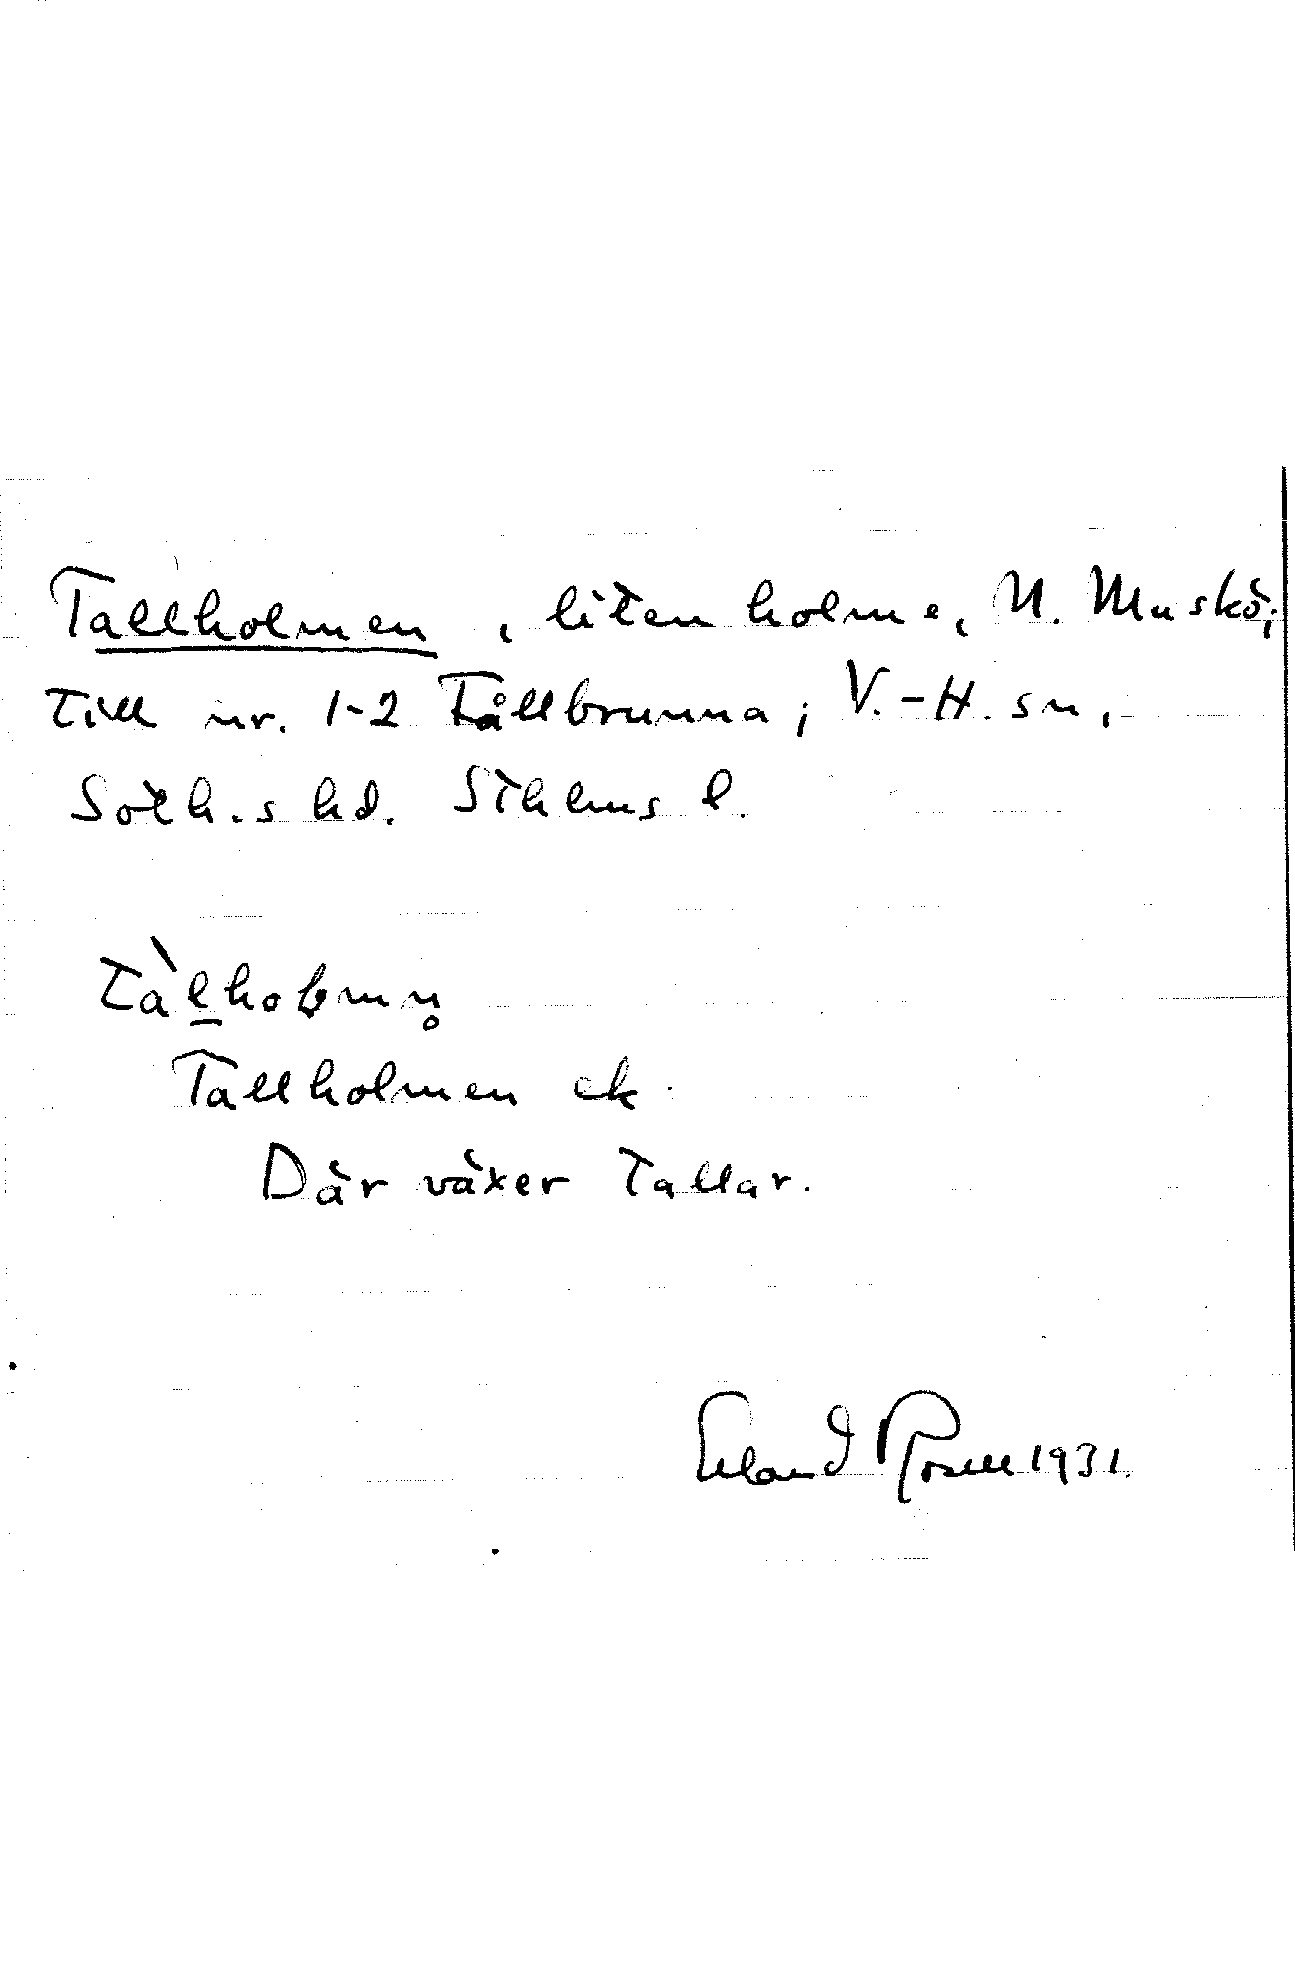 Tallholmen, liten holme, N. Muskö;
till nr. 1-2 Tållbrunna; V.-H. sn,
Soth.s hd. Sthlms l.
Tàl̲hoɫmn̥
Tallholmen ek.
Där växer tallar.
Erland Rosell 1931.